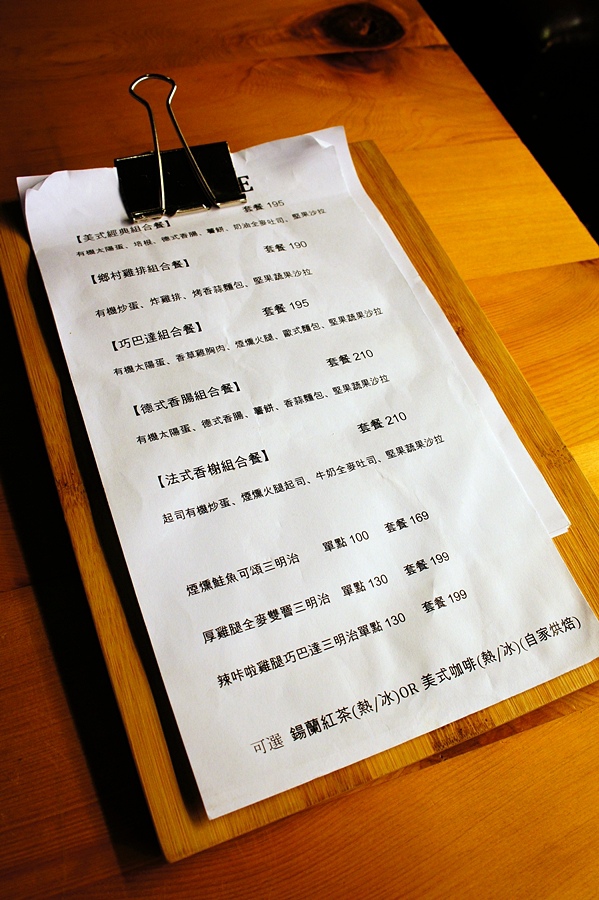 E
【美式經典組合餐】 套餐 195
有機太陽蛋、培根、德式香腸、薯餅、奶油全麥吐司、堅果蔬果沙拉
【鄉村雞排組合餐】 套餐 190
有機炒蛋、炸雞排、烤香蒜麵包、堅果蔬果沙拉
【巧巴達組合餐】 套餐 195
有機太陽蛋、香草雞胸肉、煙燻火腿、歐式麵包、堅果蔬果沙拉
【德式香腸組合餐】 套餐 210
有機太陽蛋、德式香腸、薯餅、香蒜麵包、堅果蔬果沙拉
【法式香榭組合餐】 套餐 210
起司有機炒蛋、煙燻火腿起司、牛奶全麥吐司、堅果蔬果沙拉
煙燻鮭魚可頌三明治 單點 100 套餐 169
厚雞腿全麥雙層三明治 單點 130 套餐 199
辣咔啦雞腿巧巴達三明治單點 130 套餐 199
可選 錫蘭紅茶(熱/冰)OR 美式咖啡(熱/冰)(自家烘焙)